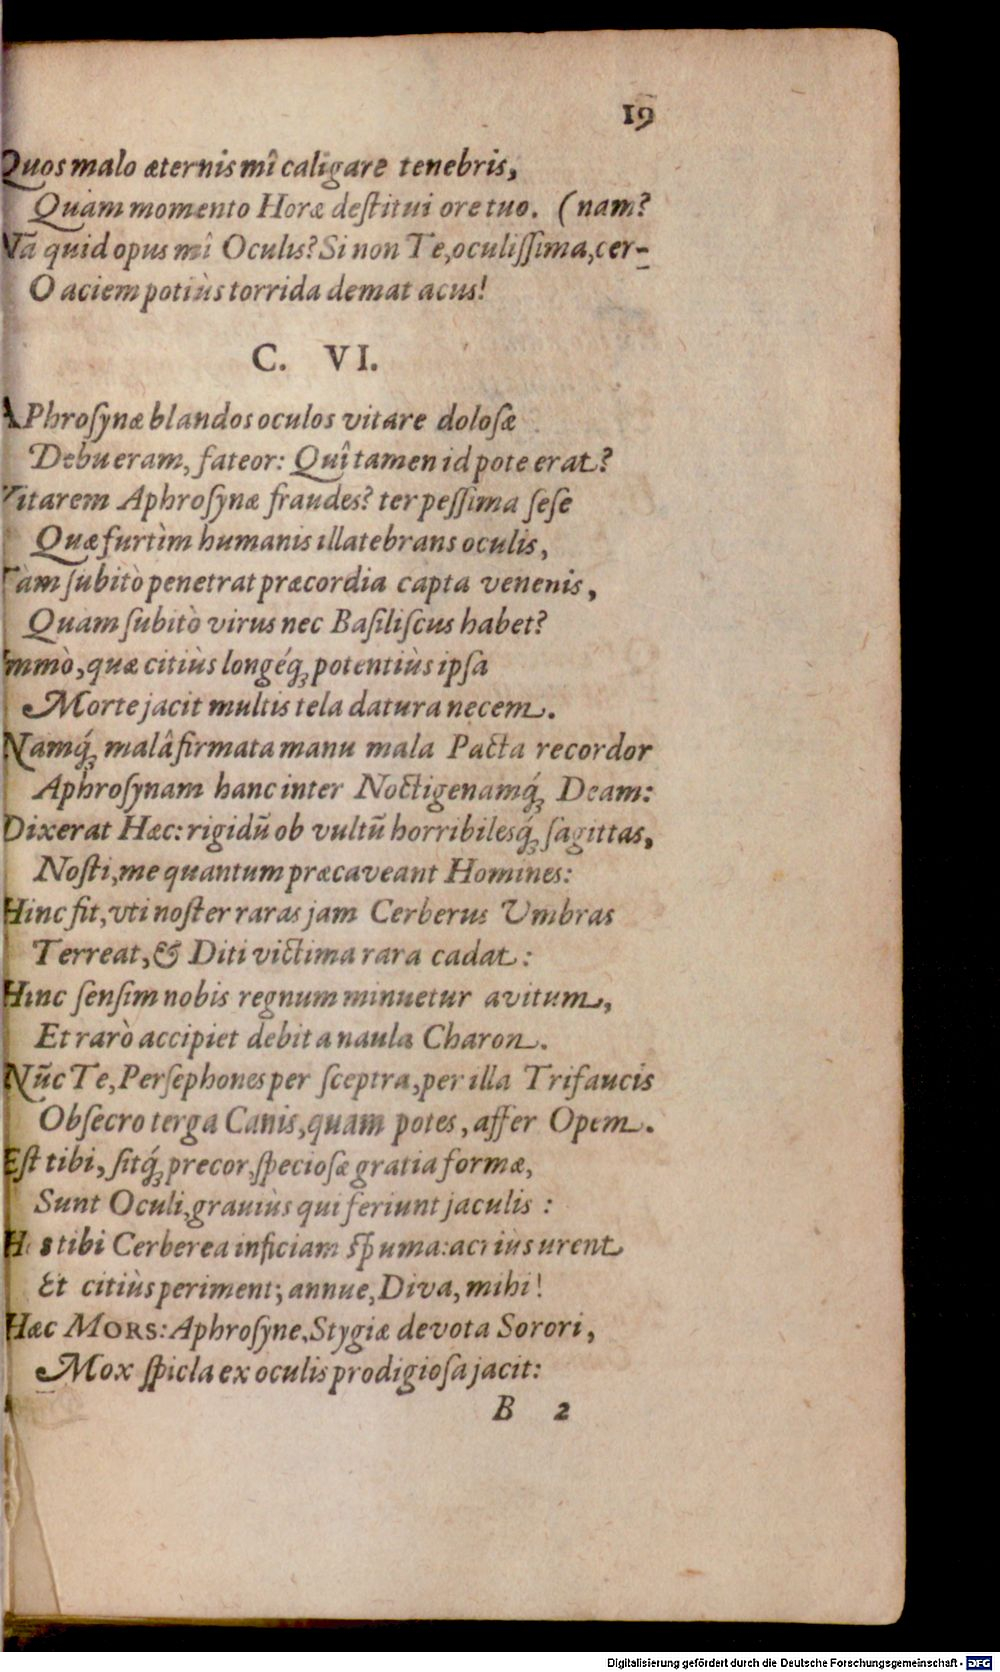 19
Quos malo æternis mî caligare tenebris,
Quàm momento Horæ deſtitui ore tuo. (nam?
Nā quid opus mî Oculis? Si non Te, oculiſſima, cer-
O aciem potiùs torrida demat acus!
C. VI.
APhroſynæ blandos oculos vitare doloſæ
Debueram, fateor: Quî tamen id pote erat?
Vitarem Aphroſynæ fraudes? ter peſſima ſeſe
Quæ furtìm humanis illatebrans oculis,
Tàm ſubitò penetrat præcordia capta venenis,
Quam ſubitò virus nec Baſiliſcus habet?
Immò, quæ citiùs longéq́; potentiùs ipſa
Morte jacit multis tela datura necem.
Namq́; malâ firmata manu mala Pacta recordor
Aphroſynam hanc inter Noctigenamq́; Deam:
Dixerat Hæc: rigidū ob vultū horribilesq́; ſagittas,
Noſti, me quantum præcaveant Homines:
Hinc fit, vti noſter raras jam Cerberus Umbras
Terreat, & Diti victima rara cadat:
Hinc ſenſim nobis regnum minuetur avitum,
Et rarò accipiet debita naula Charon.
Nūc Te, Perſephones per ſceptra, per illa Trifaucis
Obſecro terga Canis, quam potes, affer Opem.
Eſt tibi, ſitq́; precor, ſpecioſæ gratia formæ,
Sunt Oculi, grauiùs qui feriunt jaculis:
Hos tibi Cerberea inficiam ſpuma: acriùs urent
Et citiùs periment; annue, Diva, mihi!
Hæc MORS: Aphroſyne, Stygiæ devota Sorori,
Mox ſpicla ex oculis prodigioſa jacit:
B 2
Digitalisierung gefördert durch die Deutsche Forschungsgemeinschaft - DFG